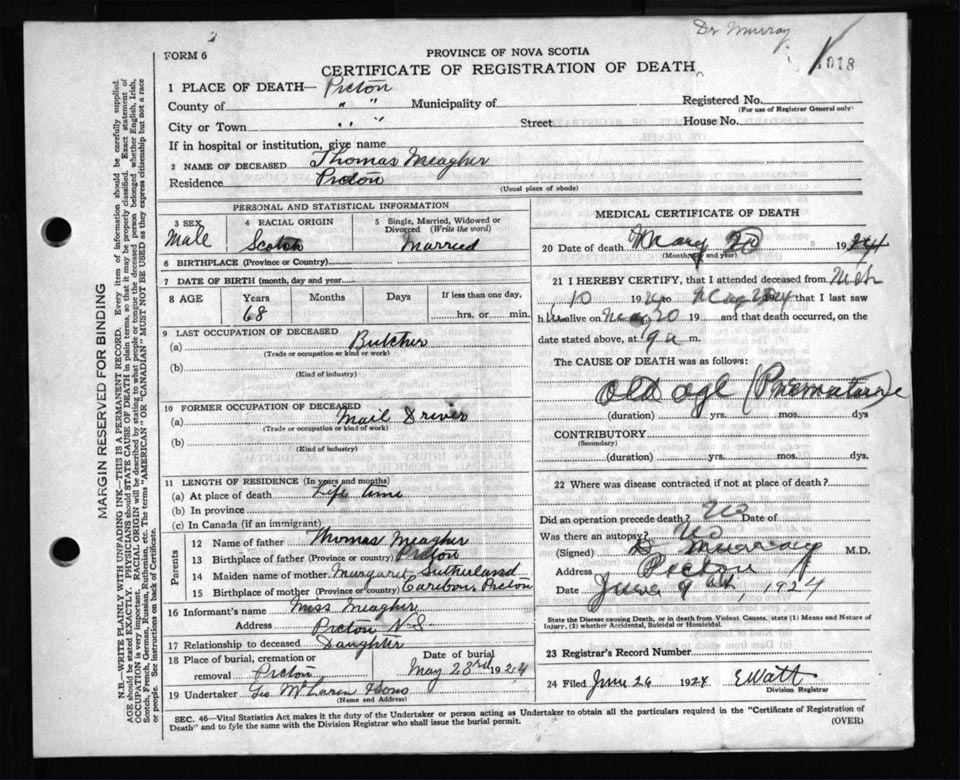 Dr Murray
FORM 6
PROVINCE OF NOVA SCOTIA
CERTIFICATE OF REGISTRATION OF DEATH
1018
1 PLACE OF DEATH— Pictou
County of " " Municipality of Registered No.
(For use of Registrar General only)
City or Town " " Street House No.
If in hospital or institution, give name
2 NAME OF DECEASED Thomas Meagher
Residence Pictou
(Usual place of abode)
PERSONAL AND STATISTICAL INFORMATION
3 SEX 4 RACIAL ORIGIN 5 Single, Married, Widowed or Divorced (Write the word)
Male Scotch Married
6 BIRTHPLACE (Province or Country)
7 DATE OF BIRTH (month, day and year)
8 AGE Years Months Days If less than one day,
68 hrs. or min.
9 LAST OCCUPATION OF DECEASED
(a) Butcher
(Trade or occupation or kind or work)
(b)
(Kind of industry)
10 FORMER OCCUPATION OF DECEASED
(a) Mail Driver
(Trade or occupation or kind of work)
(b)
(Kind of industry)
11 LENGTH OF RESIDENCE (In years and months)
(a) At place of death Life time
(b) In province
(c) In Canada (if an immigrant)
Parents
12 Name of father Thomas Meagher
13 Birthplace of father (Province or country) Pictou
14 Maiden name of mother Margaret Sutherland
15 Birthplace of mother (Province or country) Caribou, Pictou
16 Informant's name Miss Meagher
Address Pictou N-S
17 Relationship to deceased Daughter
18 Place of burial, cremation or removal Pictou Date of burial May 23rd 1924
19 Undertaker Geo McLaren & Sons
(Name and Address)
MEDICAL CERTIFICATE OF DEATH
20 Date of death May 20 1924
(Month, day and year)
21 I HEREBY CERTIFY, that I attended deceased from Mch
10 1924 to May 20 1924 that I last saw
him alive on May 20 19 and that death occurred, on the
date stated above, at 9 a m.
The CAUSE OF DEATH was as follows:
Old age (Premature)
(duration) yrs. mos. dys
CONTRIBUTORY
(Secondary)
(duration) yrs. mos. dys.
22 Where was disease contracted if not at place of death?
Did an operation precede death? No Date of
Was there an autopsy? No
(Signed) D Murray M.D.
Address Pictou
Date June 9th, 1924
State the Disease causing Death, or in death from Violent Causes, state (1) Means and Nature of Injury, (2) whether Accidental, Suicidal or Homicidal.
23 Registrar's Record Number
24 Filed June 26 1924 E Watt
Division Registrar
SEC. 46—Vital Statistics Act makes it the duty of the Undertaker or person acting as Undertaker to obtain all the particulars required in the "Certificate of Registration of
Death" and to fyle the same with the Division Registrar who shall issue the burial permit. (OVER)
MARGIN RESERVED FOR BINDING
N.B.—WRITE PLAINLY WITH UNFADING INK—THIS IS A PERMANENT RECORD. Every item of information should be carefully supplied.
AGE should be stated EXACTLY. PHYSICIANS should STATE CAUSE OF DEATH in plain terms, so that it may be properly classified. Exact statement of
OCCUPATION is very important. RACIAL ORIGIN will be described by stating to what people or tongue the deceased person belonged whether English, Irish,
Scotch, French, German, Russian, Ruthenian, etc. The terms "AMERICAN" or "CANADIAN" MUST NOT BE USED as they express citizenship but not a race
or people. See instructions on back of Certificate.